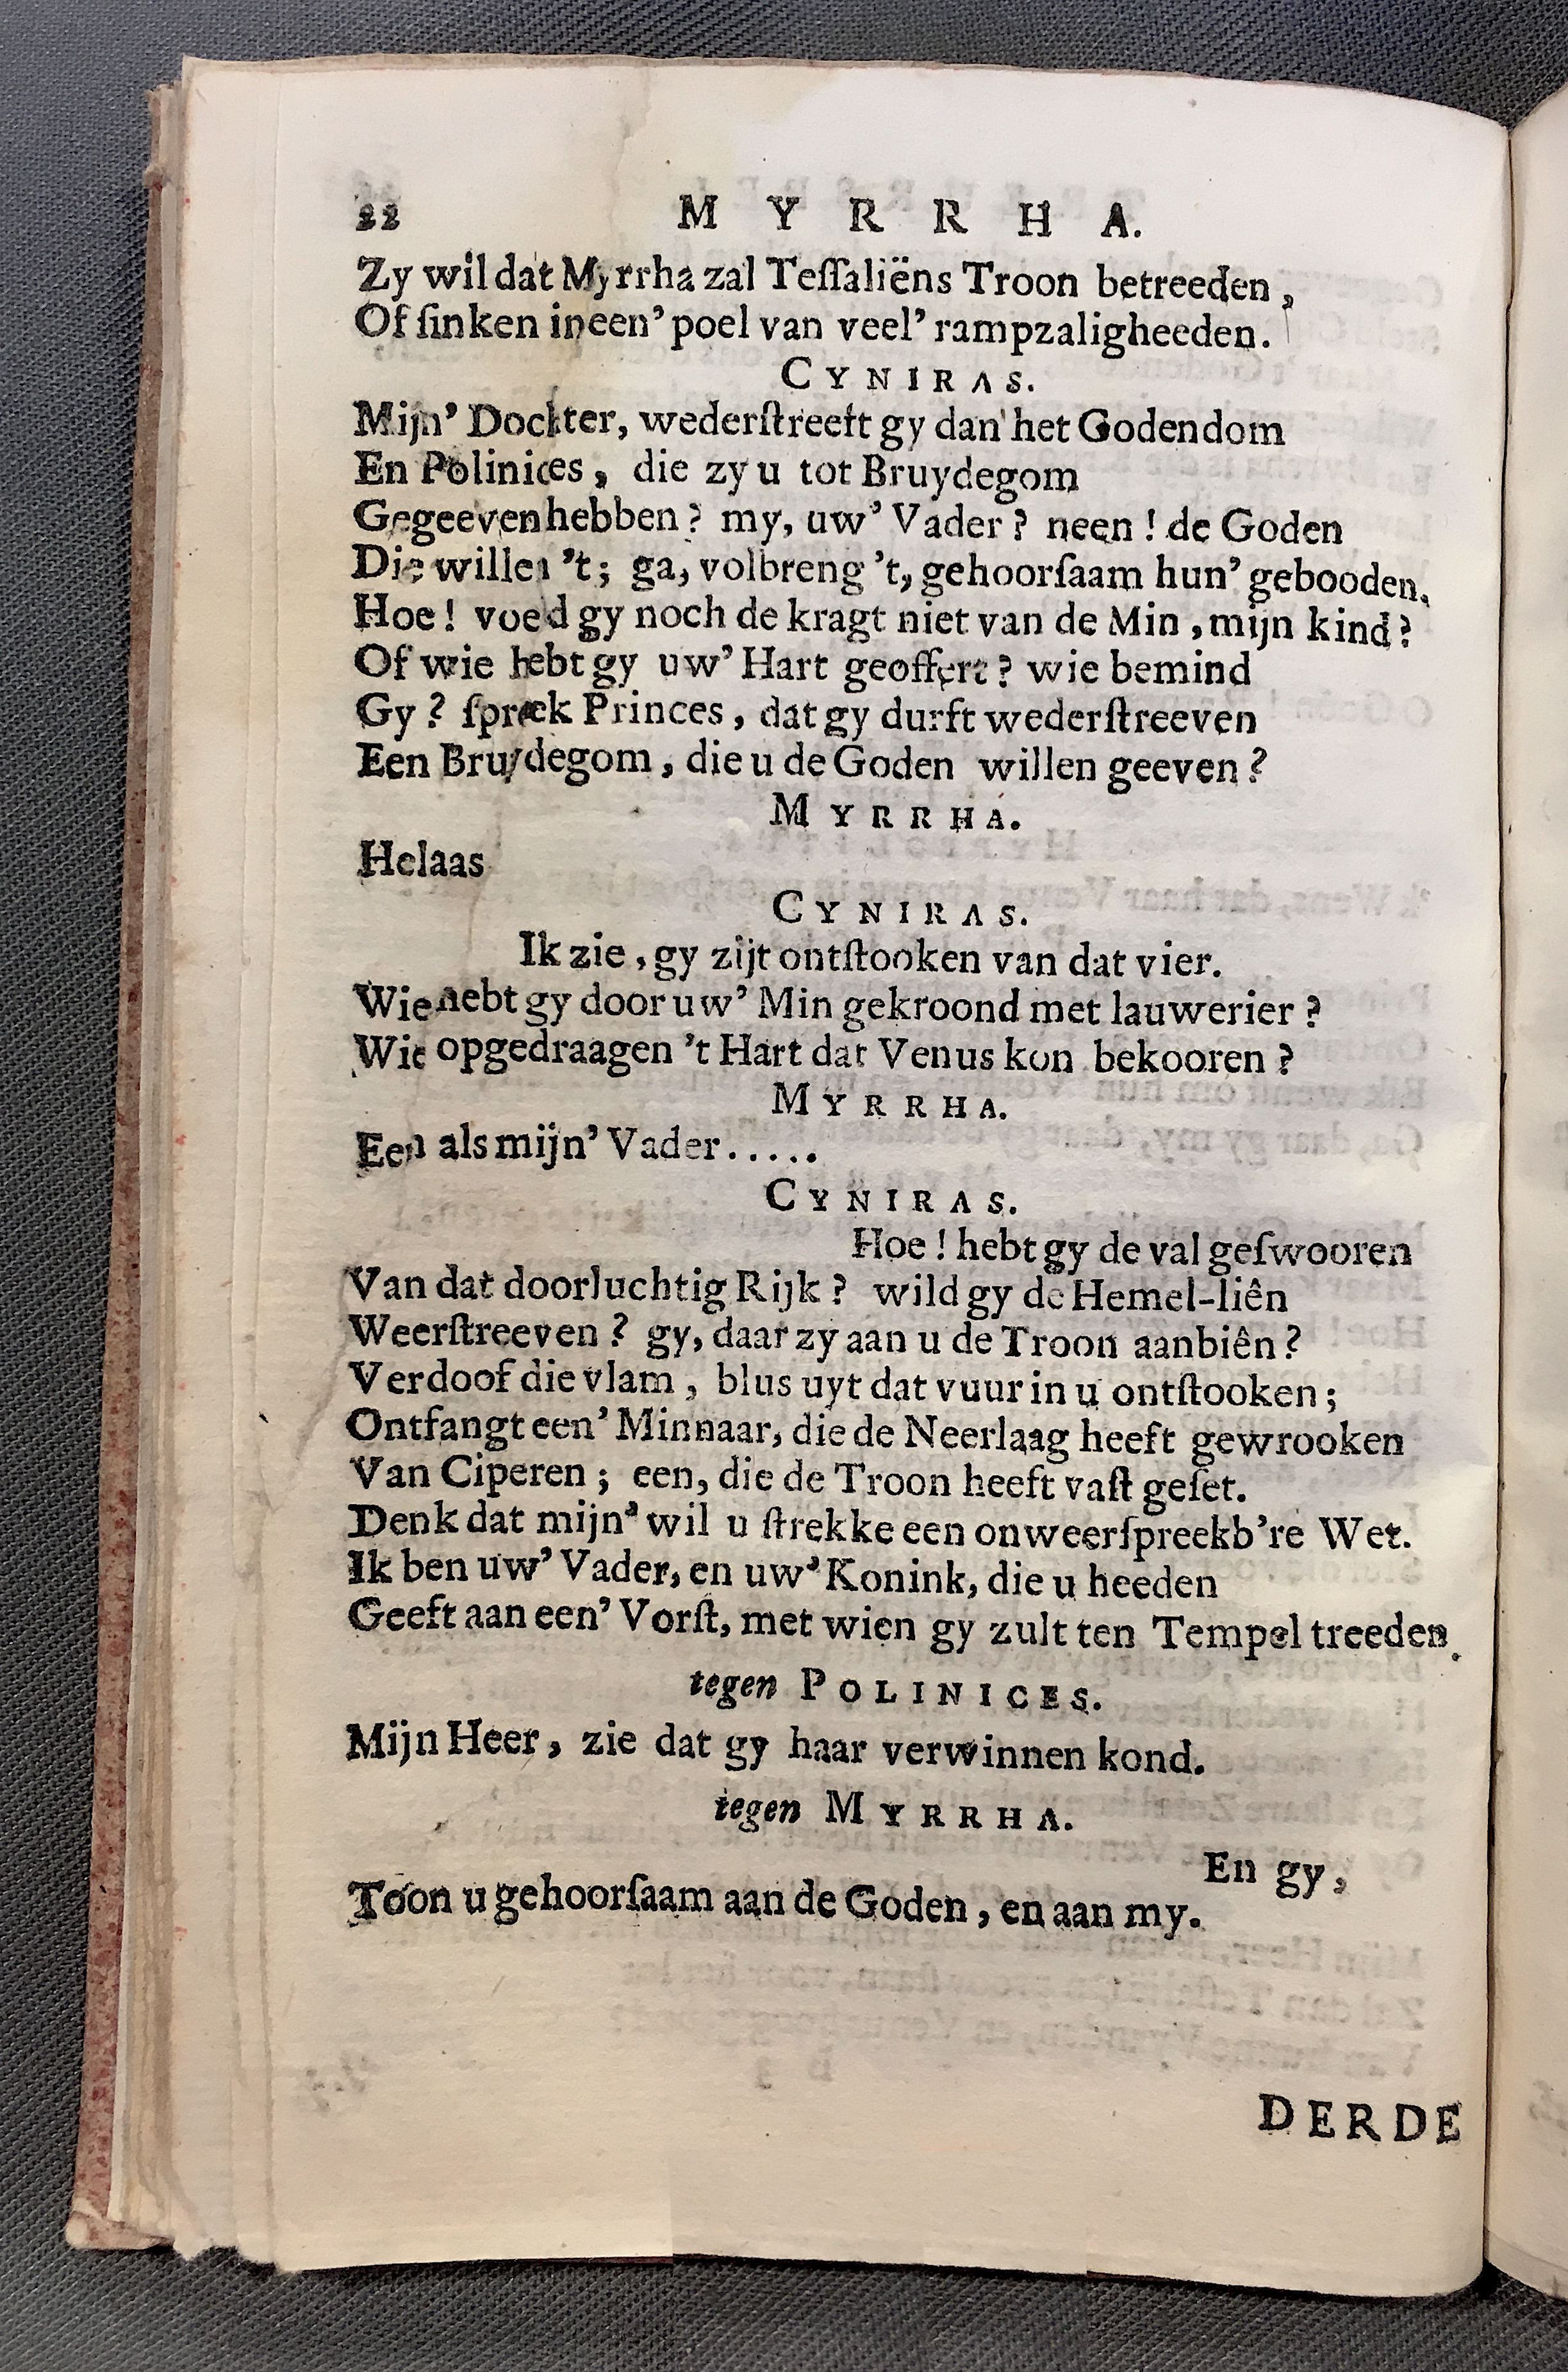 22 MYRRHA.
Zy wil dat Myrrha zal Teſſaliëns Troon betreeden,
Of ſinken in een' poel van veel' rampzaligheeden.
CYNIRAS.
Mijn' Dochter, wederſtreeft gy dan het Godendom
En Polinices, die zy u tot Bruydegom
Gegeeven hebben? my, uw' Vader? neen! de Goden
Die willen 't; ga, volbreng 't, gehoorſaam hun' gebooden.
Hoe! voed gy noch de kragt niet van de Min, mijn kind?
Of wie hebt gy uw' Hart geoffert? wie bemind
Gy? ſpreek Princes, dat gy durft wederſtreeven
Een Bruydegom, die u de Goden willen geeven?
MYRRHA.
Helaas
CYNIRAS.
Ik zie, gy zijt ontſtooken van dat vier.
Wie hebt gy door uw' Min gekroond met lauwerier?
Wie opgedraagen 't Hart dat Venus kon bekooren?
MYRRHA.
Een als mijn' Vader.....
CYNIRAS.
Hoe! hebt gy de val geſwooren
Van dat doorluchtig Rijk? wild gy de Hemel-liên
Weerſtreeven? gy, daar zy aan u de Troon aanbiên?
Verdoof die vlam, blus uyt dat vuur in u ontſtooken;
Ontfangt een' Minnaar, die de Neerlaag heeft gewrooken
Van Ciperen; een, die de Troon heeft vaſt geſet.
Denk dat mijn' wil u ſtrekke een onweerſpreekb're Wet.
Ik ben uw' Vader, en uw' Konink, die u heeden
Geeft aan een' Vorſt, met wien gy zult ten Tempel treeden.
tegen POLINICES.
Mijn Heer, zie dat gy haar verwinnen kond.
tegen MYRRHA.
En gy,
Toon u gehoorſaam aan de Goden, en aan my.
DERDE